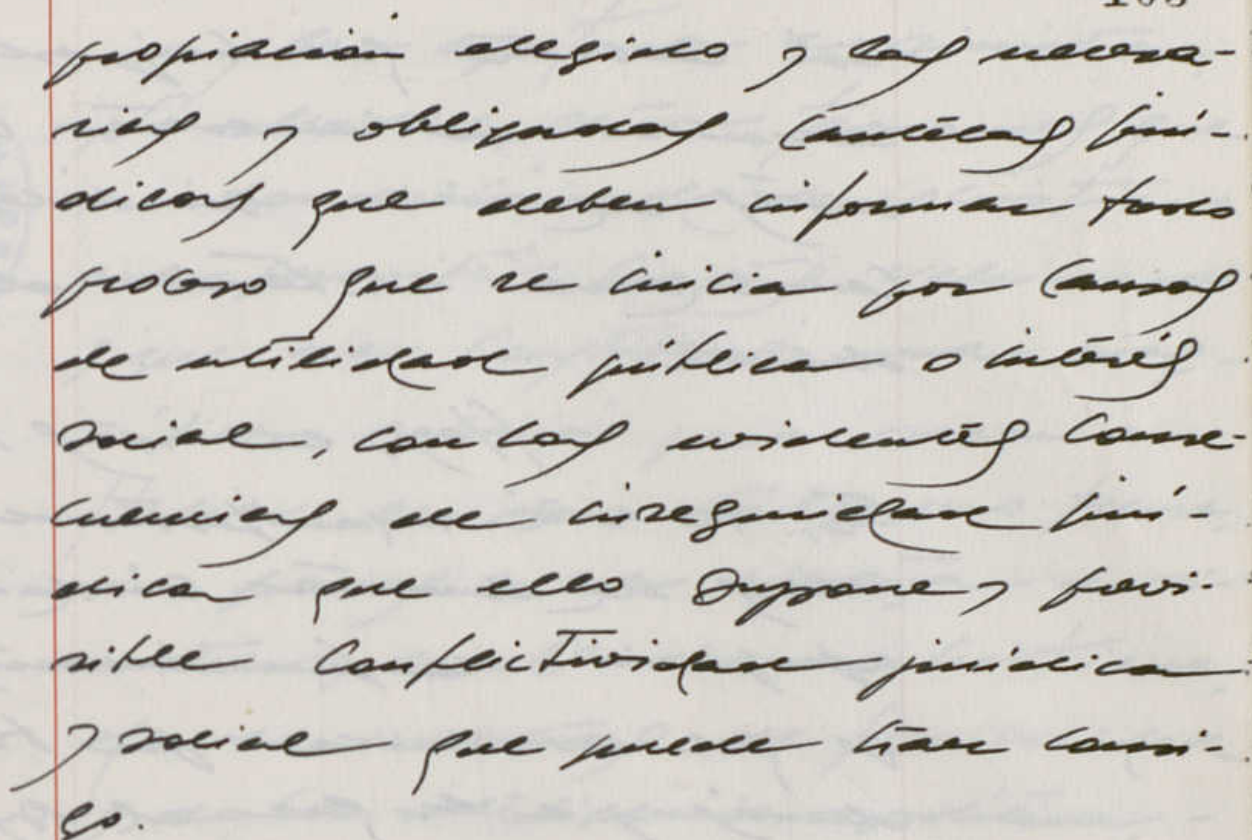 propiación elegido y las necesa-
rias y obligadas cautelas jurí-
dicas que deben informar todo
proceso que se inicia por causas
de utilidad pública o interés
social, con las evidentes conse-
cuencias de inseguridad jurí-
dica que ello supone y previ-
sible conflictividad jurídica
y social que puede traer consi-
go.